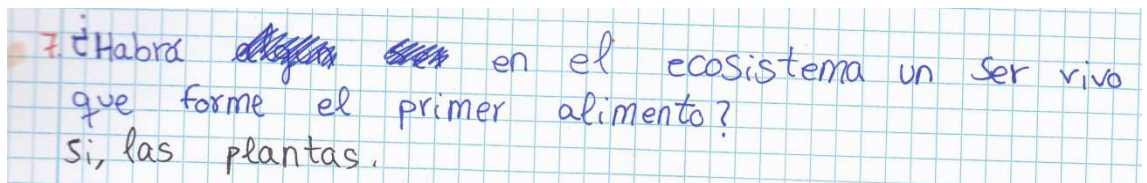 7. ¿Habrá en el ecosistema un ser vivo
que forme el primer alimento?
Si, las plantas.